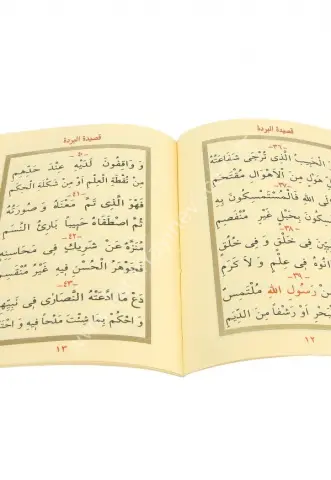 قصيدة البردة
-٣٦-
الْحَبِيبُ الَّذِى تُرْجَى شَفَاعَتُهُ
هَوْلٍ مِنَ الْاَهْوَالِ مُقْتَحَمِ
-٣٧-
اِلَى اللّٰهِ فَالْمُسْتَمْسِكُونَ بِهِ
بِحَبْلٍ غَيْرِ مُنْفَصِمِ
-٣٨-
فِى خَلْقٍ وَ فِى خُلُقٍ
فِى عِلْمٍ وَ لَا كَرَمِ
-٣٩-
مِنْ رَسُولِ اللّٰهِ مُلْتَمِسٌ
اَوْ رَشْفًا مِنَ الدِّيَمِ
١٢
قصيدة البردة
-٤٠-
وَ وَاقِفُونَ لَدَيْهِ عِنْدَ حَدِّهِمِ
مِنْ نُقْطَةِ الْعِلْمِ اَوْ مِنْ شَكْلَةِ الْحِكَمِ
-٤١-
فَهْوَ الَّذِى تَمَّ مَعْنَاهُ وَ صُورَتُهُ
ثُمَّ اصْطَفَاهُ حَبِيبًا بَارِئُ النَّسَمِ
-٤٢-
مُنَزَّهٌ عَنْ شَرِيكٍ فِى مَحَاسِنِهِ
فَجَوْهَرُ الْحُسْنِ فِيهِ غَيْرُ مُنْقَسِمِ
-٤٣-
دَعْ مَا ادَّعَتْهُ النَّصَارَى فِى نَبِيِّهِمِ
وَ احْكُمْ بِمَا شِئْتَ مَدْحًا فِيهِ وَ
١٣